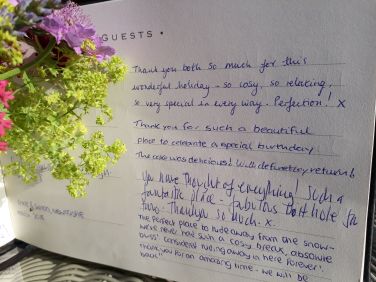 GUESTS •
Thank you both so much for this
wonderful holiday - so cosy, so relaxing,
so very special in every way. Perfection! x
Thank you for such a beautiful
place to celebrate a special birthday!
The cake was delicious! Will definetley return!
You have thought of everything! Such a
fantastic place - fabulous bolt hole for
Thank you so much. x
The perfect place to hide away from one snow-
we've never had such a cosy break, absolute
considered hiding away in here forever!
Thank you for an amazing time - we will be
back"